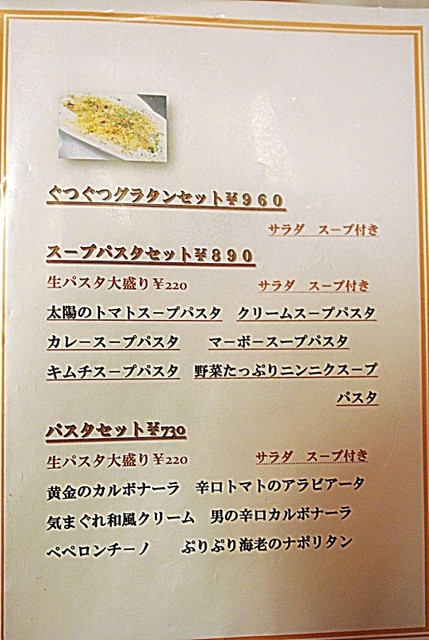 ぐつぐつグラタンセット¥960
サラダ　スープ付き
スープパスタセット¥890
生パスタ大盛り¥220　サラダ　スープ付き
太陽のトマトスープパスタ　クリームスープパスタ
カレースープパスタ　マーボースープパスタ
キムチスープパスタ　野菜たっぷりニンニクスープ
パスタ
パスタセット¥730
生パスタ大盛り¥220　サラダ　スープ付き
黄金のカルボナーラ　辛口トマトのアラビアータ
気まぐれ和風クリーム　男の辛口カルボナーラ
ペペロンチーノ　ぷりぷり海老のナポリタン